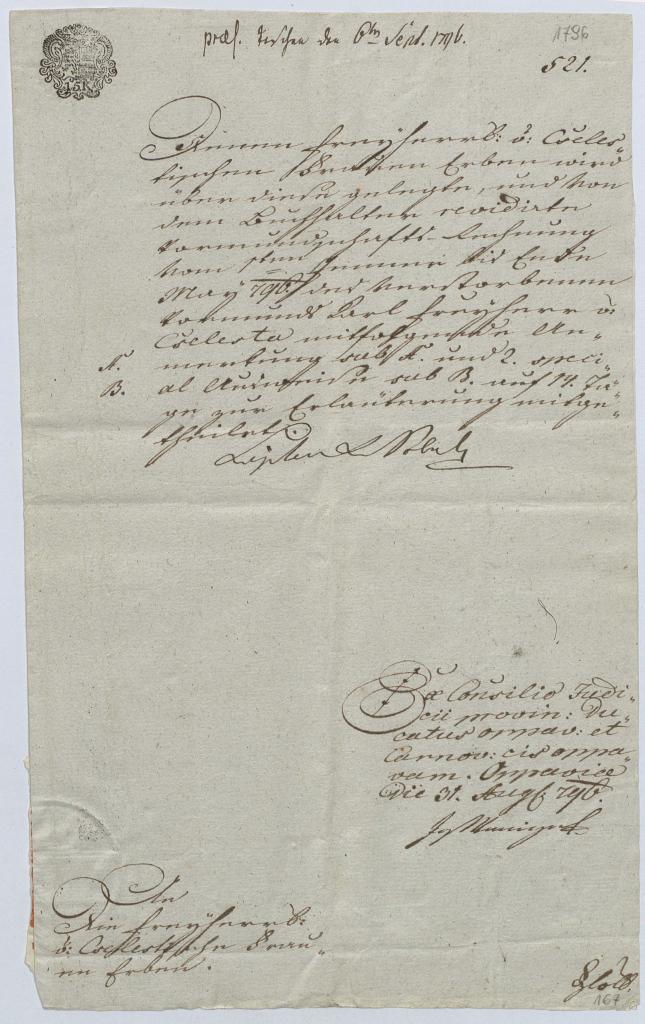 15K
præs. Teschen den 6ten Sept. 1796.
1796
521.
Denen Freyherrl: v: Cseles„
tischen Frauen Erben wird
über diese gelegte, und von
dem Buchhalter revidirte
Vormundschafts-Rechnung
vom 1ten Jenner bis Ende
May 796. des verstorbenen
Vormunds Carl Freyherr v:
Cselesta mitfolgende An„
A. merkung sub A. und 2. speci„
B. al Ausweise sub B. auf 14. Tä„
ge zur Erläuterung mitge„
theilet.
Ex Consilio Judi„
cii provin: Du„
catus oppav: et
Carnov: cis oppa„
vam. Oppaviæ
Die 31. Aug. 796.
An
Die Freyherrl:
v: Cselestische Frau„
en Erben.
167